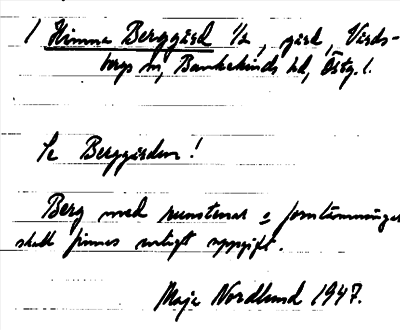 1 Himna Berggård 1/2, gård, Vårds-
bergs sn, Bankekinds hd, Östg. l.
Se Berggården!
Berg med runstenar o fornlämningar
skall finnas enligt uppgift.
Maja Nordlund 1947.